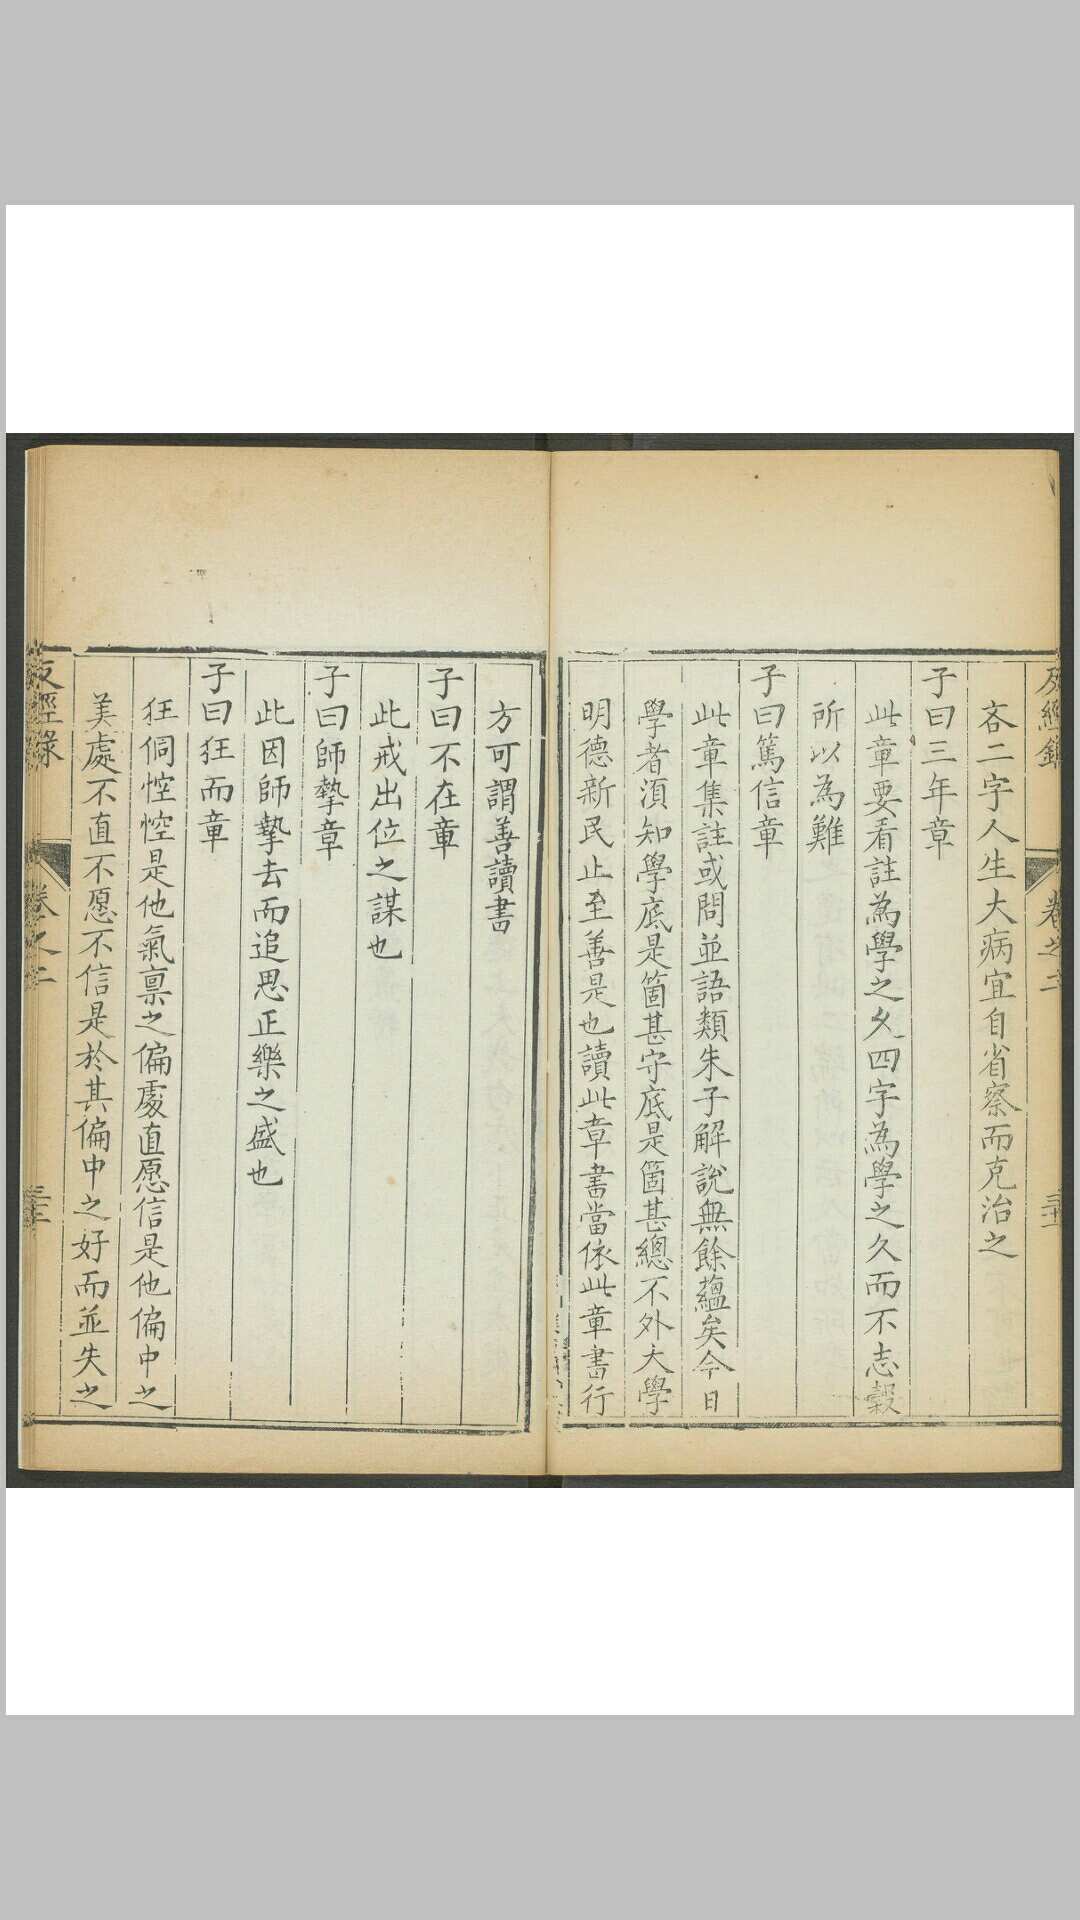 反經錄 卷之二 三十一
吝二字人生大病宜自省察而克治之
子曰三年章
此章要看註為學之久四字為學之久而不志穀
所以為難
子曰篤信章
此章集註或問並語類朱子解說無餘蘊矣今日
學者須知學底是箇甚守底是箇甚總不外大學
明德新民止至善是也讀此章書當依此章書行
方可謂善讀書
子曰不在章
此戒出位之謀也
子曰師摯章
此因師摯去而追思正樂之盛也
子曰狂而章
狂侗悾悾是他氣稟之偏處直愿信是他偏中之
美處不直不愿不信是於其偏中之好而並失之
反經錄 卷之二